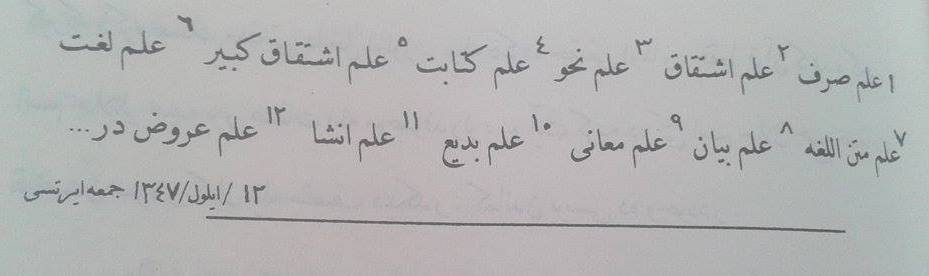 ١ علم صرف ٢ علم اشتقاق ٣ علم نحو ٤ علم كتابت ٥ علم اشتقاق كبير ٦ علم لغت
٧ علم متن اللغه ٨ علم بيان ٩ علم معانى ١٠ علم بديع ١١ علم انشا ١٢ علم عروض در...
١٢ /ايلول/١٣٤٧ جمعه ايرتسى